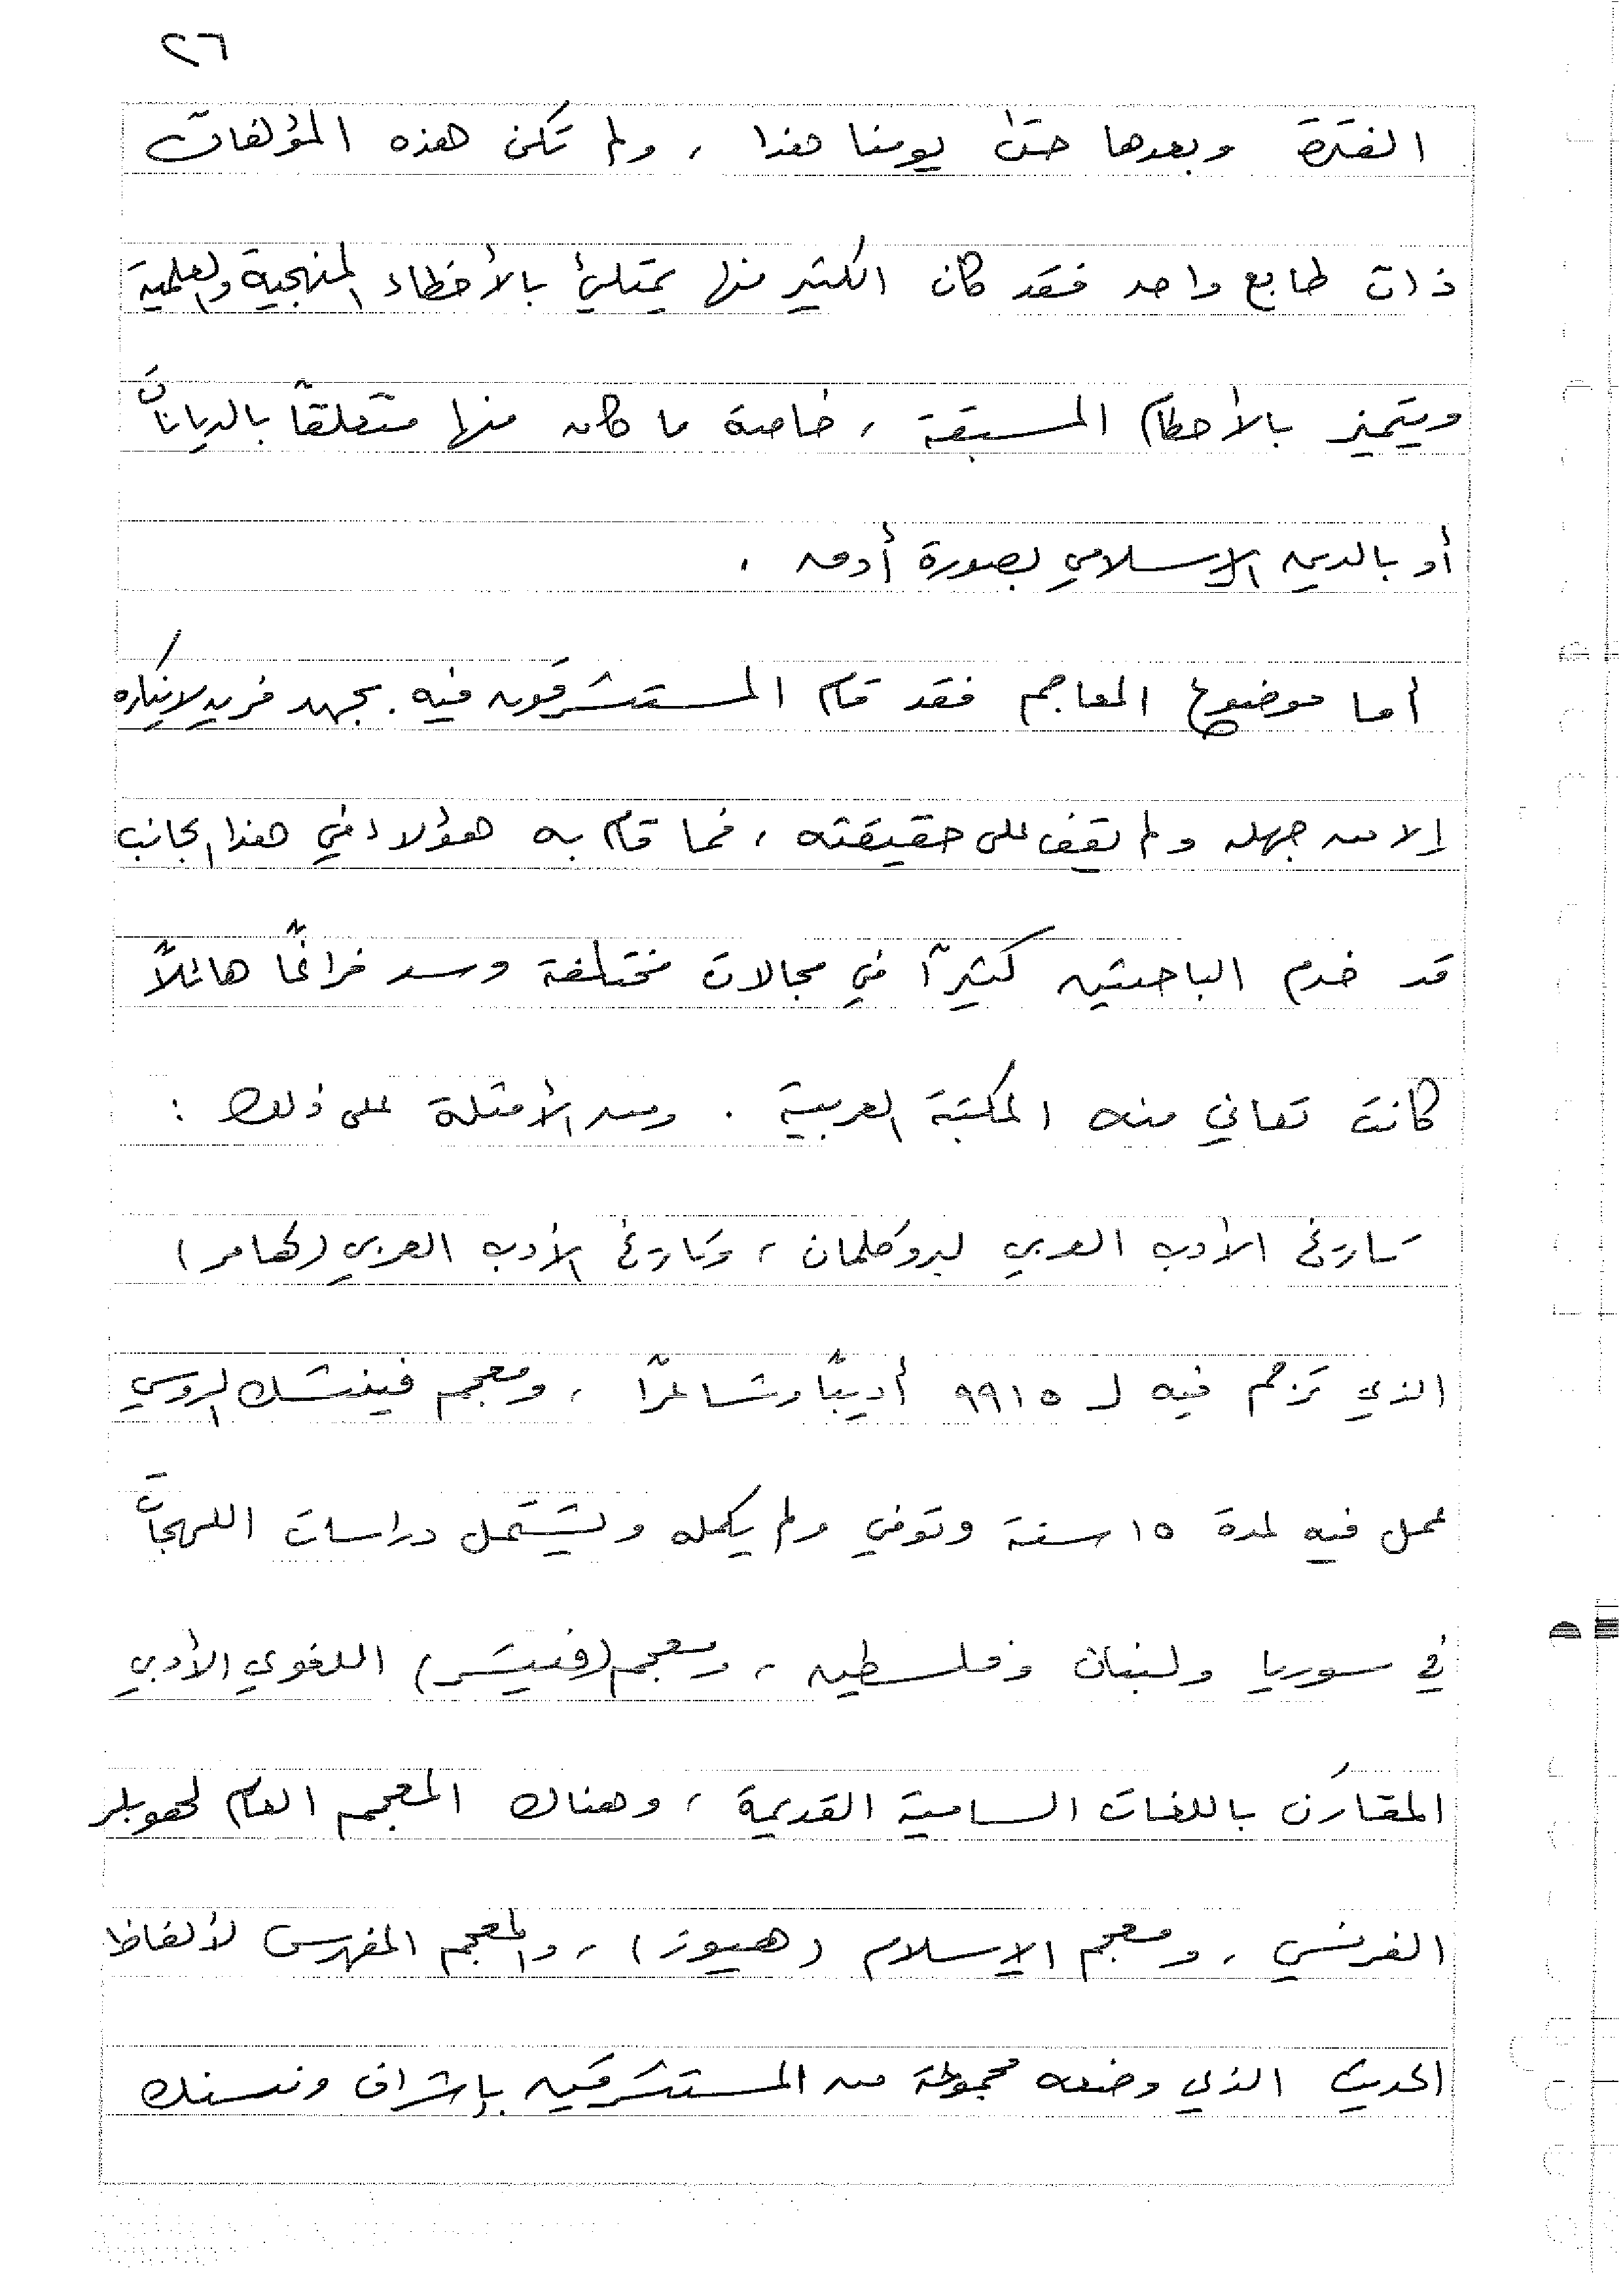 ٢٦
الفترة وبعدها حتى يومنا هذا ، ولم تكن هذه المؤلفات
ذات طابع واحد فقد كان الكثير منها يمتلئ بالأخطاء المنهجية والعلمية
ويتميز بالأحكام المسبقة ، خاصة ما كان منها متعلقاً بالديانات
أو بالدين الإسلامي بصورة أدق .
أما موضوع المعاجم فقد قام المستشرقون فيه بجهد فريد لا ينكره
إلا من جهله ولم يقف على حقيقته ، فما قام به هؤلاء في هذا الجانب
قد خدم الباحثين كثيراً في مجالات مختلفة وسد فراغاً هائلاً
كانت تعاني منه المكتبة العربية . ومن الأمثلة على ذلك :
تاريخ الأدب العربي لبروكلمان ، وتاريخ الأدب العربي (لهامر)
الذي ترجم فيه لـ ٩٩١٥ أديباً وشاعراً ، ومعجم فيننشك الروسي
عمل فيه لمدة ١٥ سنة وتوفي ولم يكمله ويشتمل دراسات اللهجات
في سوريا ولبنان وفلسطين ، ومعجم (فيشر) اللغوي الأدبي
المقارن باللغات السامية القديمة ، وهناك المعجم العام لهوبلر
الفرنسي ، ومعجم الإسلام (هيوز) ، والمعجم المفهرس لألفاظ
الحديث الذي وضعه مجموعة من المستشرقين بإشراف ونسنك